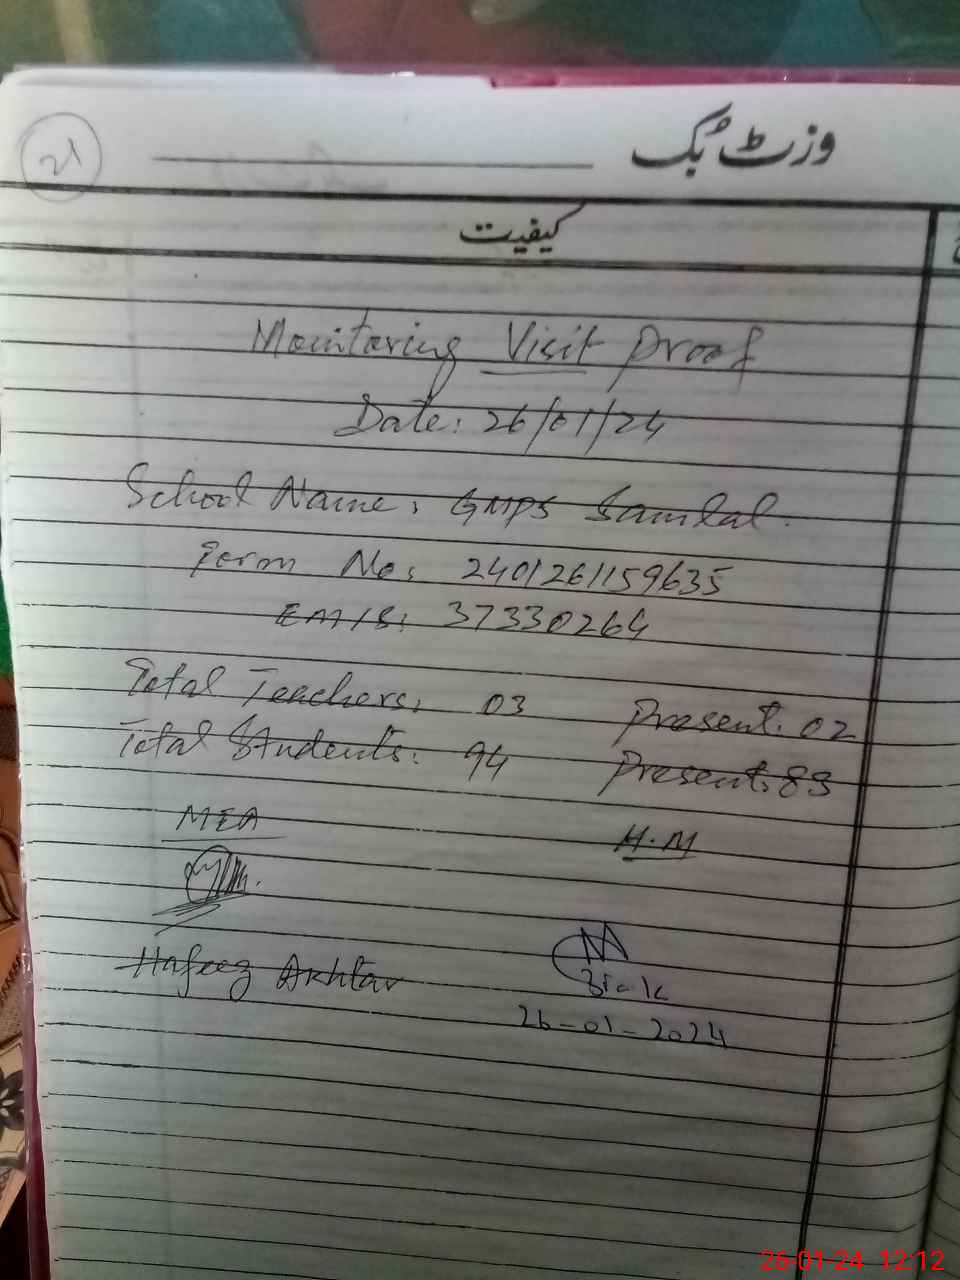 21
وزٹ بُک
کیفیت
Monitoring Visit Proof
Date: 26/01/24
School Name: GMPS Samlal.
Form No: 2401261159635
EMIS: 37330264
Total Teachers: 03 Present: 02
Total Students: 94 Present: 89
MEA H.M
Hafeez Akhtar
26-01-2024
26-01-24 12:12